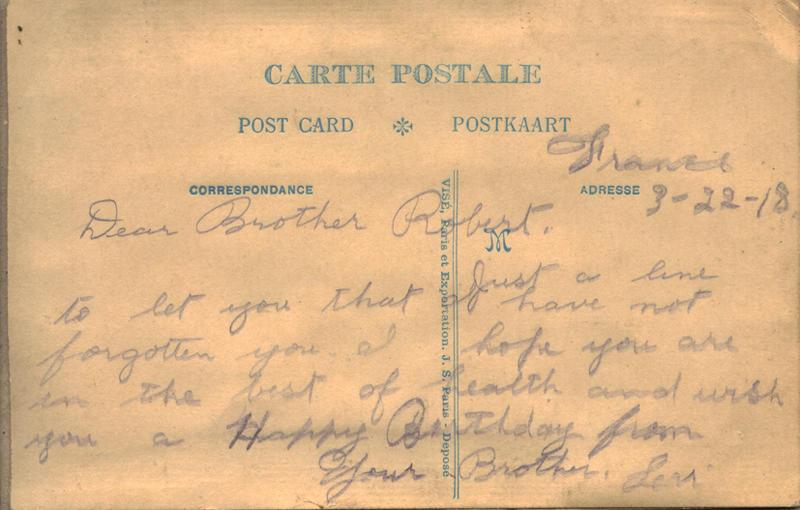 CARTE POSTALE
POST CARD ✻ POSTKAART
France
CORRESPONDANCE
ADRESSE
3-22-18.
Dear Brother Robert.
M
Just a line
to let you that I have not
forgotten you. I hope you are
in the best of health and wish
you a Happy Birthday from
Your Brother. Levi
VISÉ, Paris et Exportation. J. S. Paris - Déposé